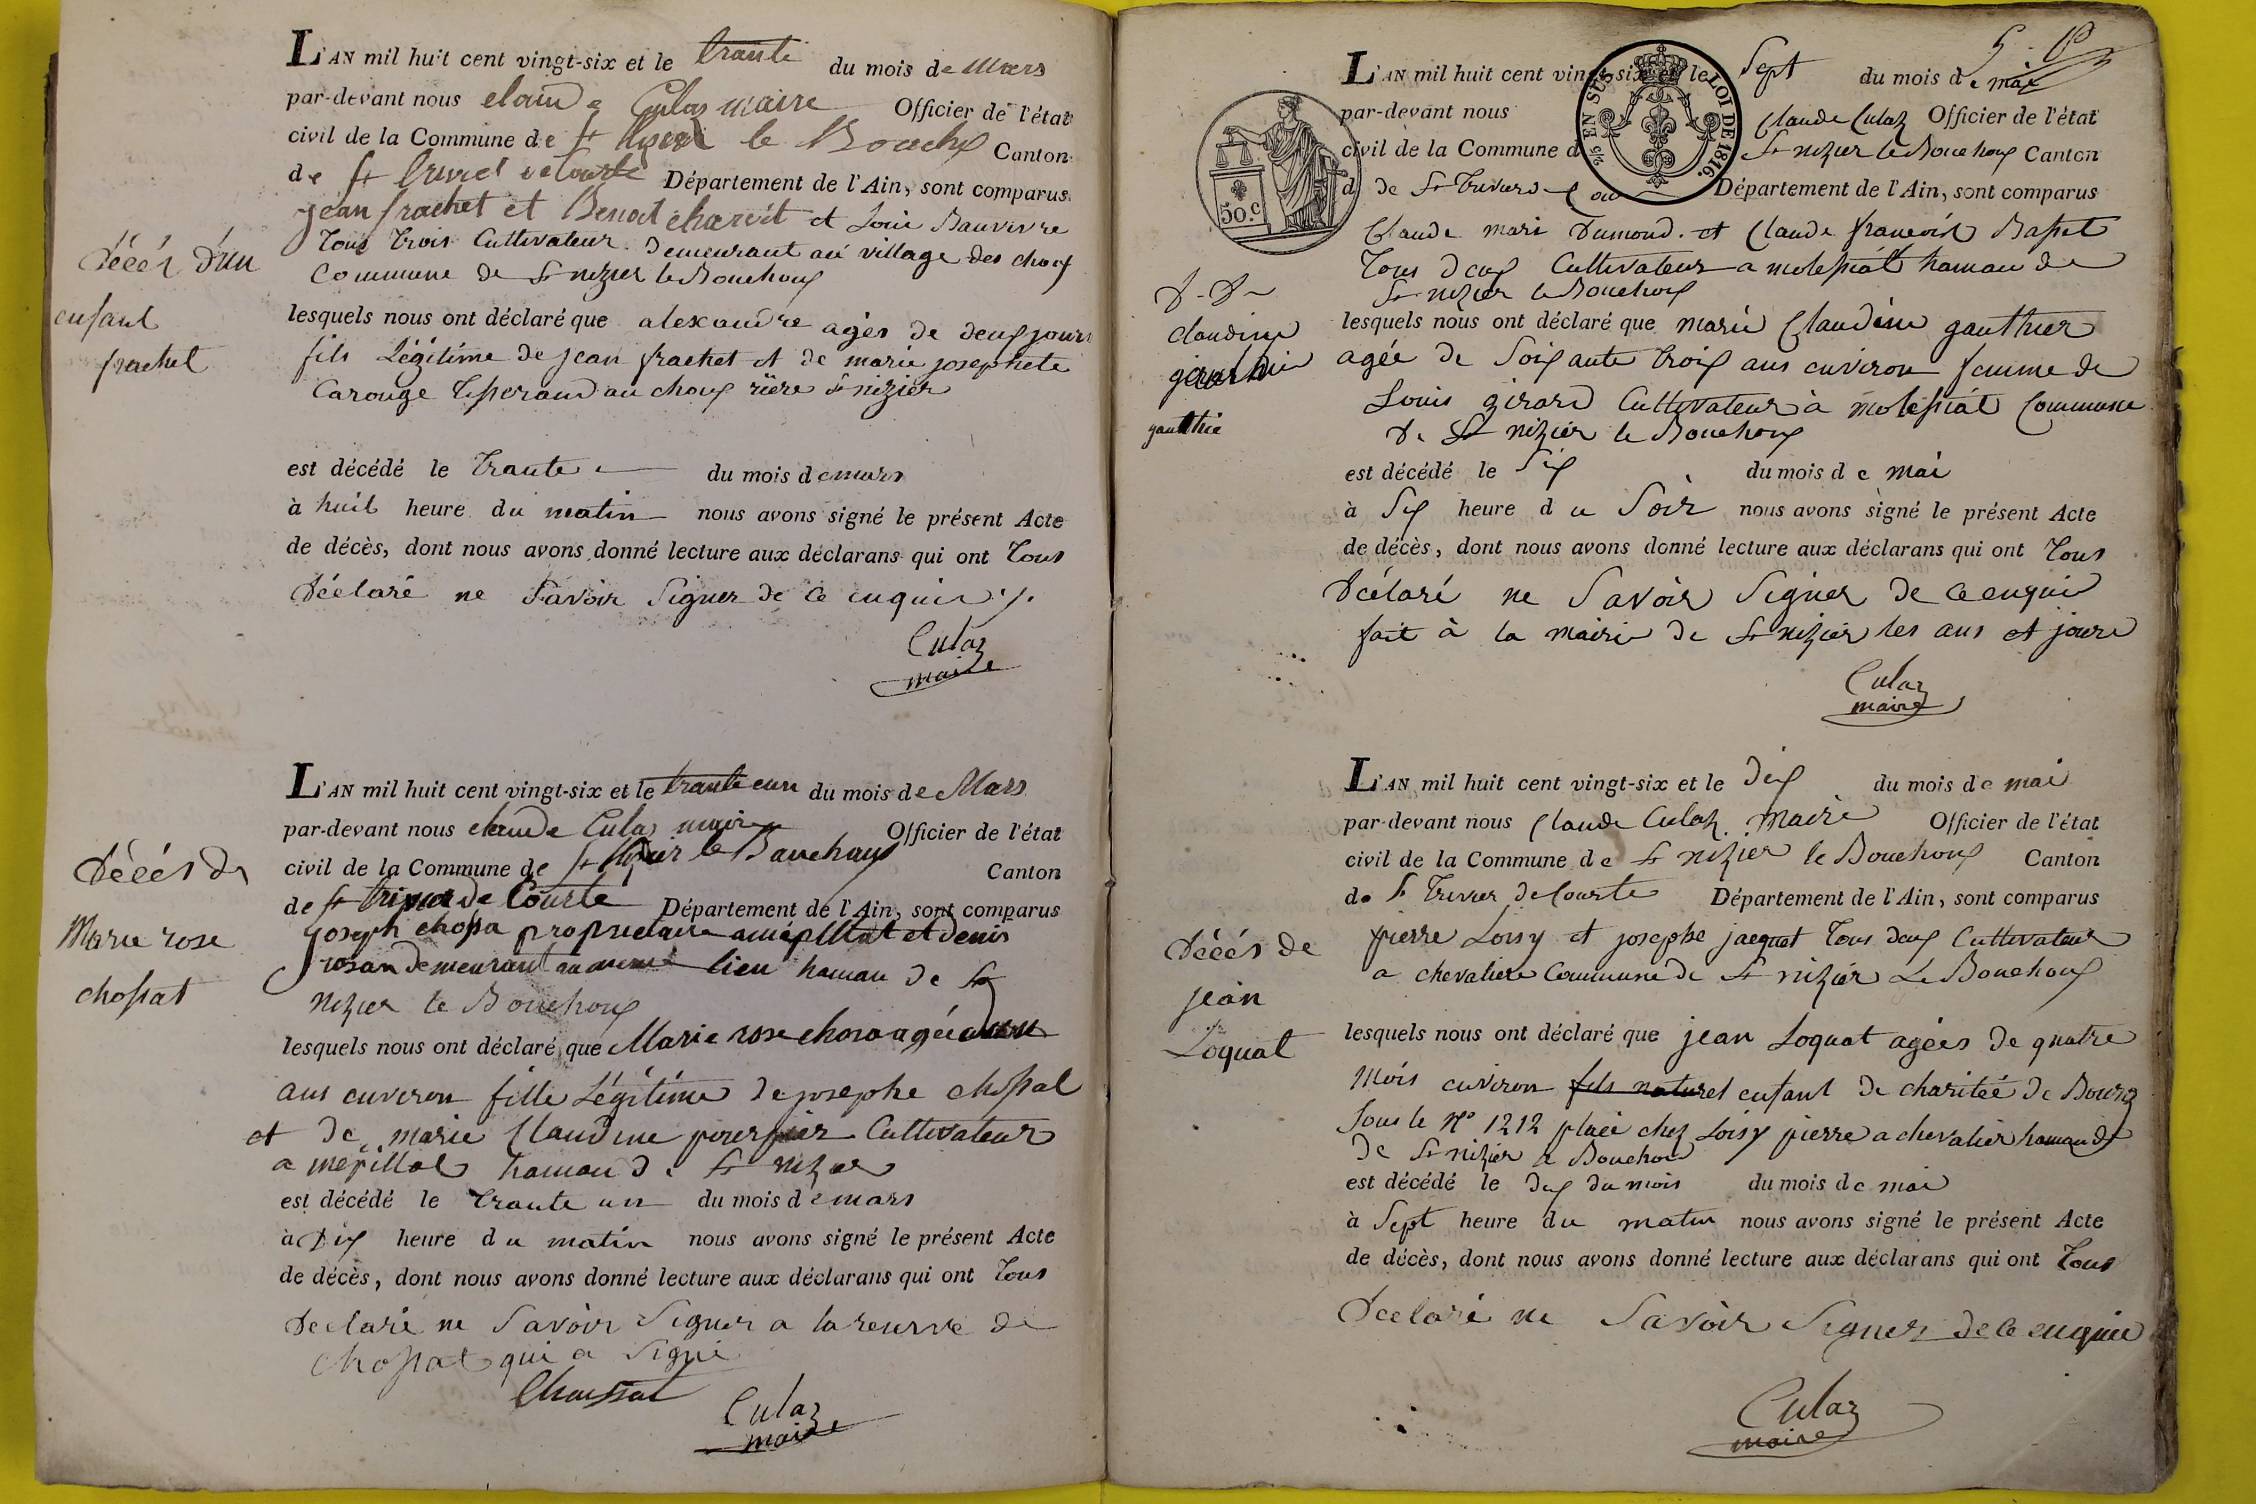 L'AN mil huit cent vingt-six et le trante du mois de Mars
par-devant nous claude Culaz maire Officier de l'état
civil de la Commune de St nizier le Bouchoux Canton
de St trivier de Courte Département de l'Ain, sont comparus
jean frachet et Benoit et Louis Bauvivre
Tous trois Cultivateur Demeurant au village des choux
Commune de St nizier le Bouchoux
Décés d'un
enfant
frachet
lesquels nous ont déclaré que alexandre agés de deux jours
fils Légitime de jean frachet et de marie josephete
Carouge au choux rière St nizier
est décédé le trante du mois de mars
à huit heure du matin nous avons signé le présent Acte
de décès, dont nous avons donné lecture aux déclarans qui ont Tous
Déclaré ne Savoir Signer de ce enquis ./.
Culaz
maire
L'AN mil huit cent vingt-six et le trante eun du mois de Mars
par-devant nous claude Culaz maire Officier de l'état
civil de la Commune de St nizier le Bauchoux Canton
de St trivier de Courte Département de l'Ain, sont comparus
Décés de
Marie rose
chossat
joseph chossa proprietaire a mépillat et denis
rosan demeurant au meme lieu hamau de St
nizier le Bouchoux
lesquels nous ont déclaré que Marie rose chosa agée d'un
ans environ fille Légitime de josephe chossat
et de marie Claudine Cultivateur
a mépillat hamau de St nizier
est décédé le trante un du mois de mars
à Dix heure du matin nous avons signé le présent Acte
de décès, dont nous avons donné lecture aux déclarans qui ont Tous
Declaré ne Savoir Signer a la reserve de
Chossat qui a Signé
Chaussat
Culaz
maire
5.
L'AN mil huit cent vingt-six et le Sept du mois de mai
par-devant nous Claude Culaz Officier de l'état
civil de la Commune d St nizier le Bouchoux Canton
d de St Trivier Cou Département de l'Ain, sont comparus
50.C
EN SUS LOI DE 1816.
Claude mari Dumond. et Claude francois Basset
Tous deux Cultivateur a molessiat hamau de
St nizier le Bouchoux
D-D
claudine
gauthie
lesquels nous ont déclaré que marie Claudine gauthier
agée de Soixante trois ans environ femme de
Louis girard Cultivateur à molessiat Commune
De St nizier le Bouchoux
est décédé le Six du mois de mai
à Six heure du Soir nous avons signé le présent Acte
de décès, dont nous avons donné lecture aux déclarans qui ont Tous
Déclaré ne Savoir Signer de ce enquis
fait à la mairie de St nizier les ans et jours
Culaz
maire
L'AN mil huit cent vingt-six et le Dix du mois de mai
par-devant nous Claude Culaz. Maire Officier de l'état
civil de la Commune de St nizier le Bouchoux Canton
de St Trivier de Courte Département de l'Ain, sont comparus
Décés de
jean
Loquat
pierre Loisy et josephe jacquet Tous deux Cultivateur
a chevaliere Commune de St nizier Le Bouchoux
lesquels nous ont déclaré que jean Loquat agées de quatre
Mois environ fils naturel enfant de charitée de Bourg
Sous le N° 1212 placé chez Loisy pierre a chevalier hamau de
De St nizier le Bouchoux
est décédé le dix du mois du mois de mai
à Sept heure du matin nous avons signé le présent Acte
de décès, dont nous avons donné lecture aux déclarans qui ont Tous
Declaré ne Savoir Signer de ce enquis
Culaz
maire